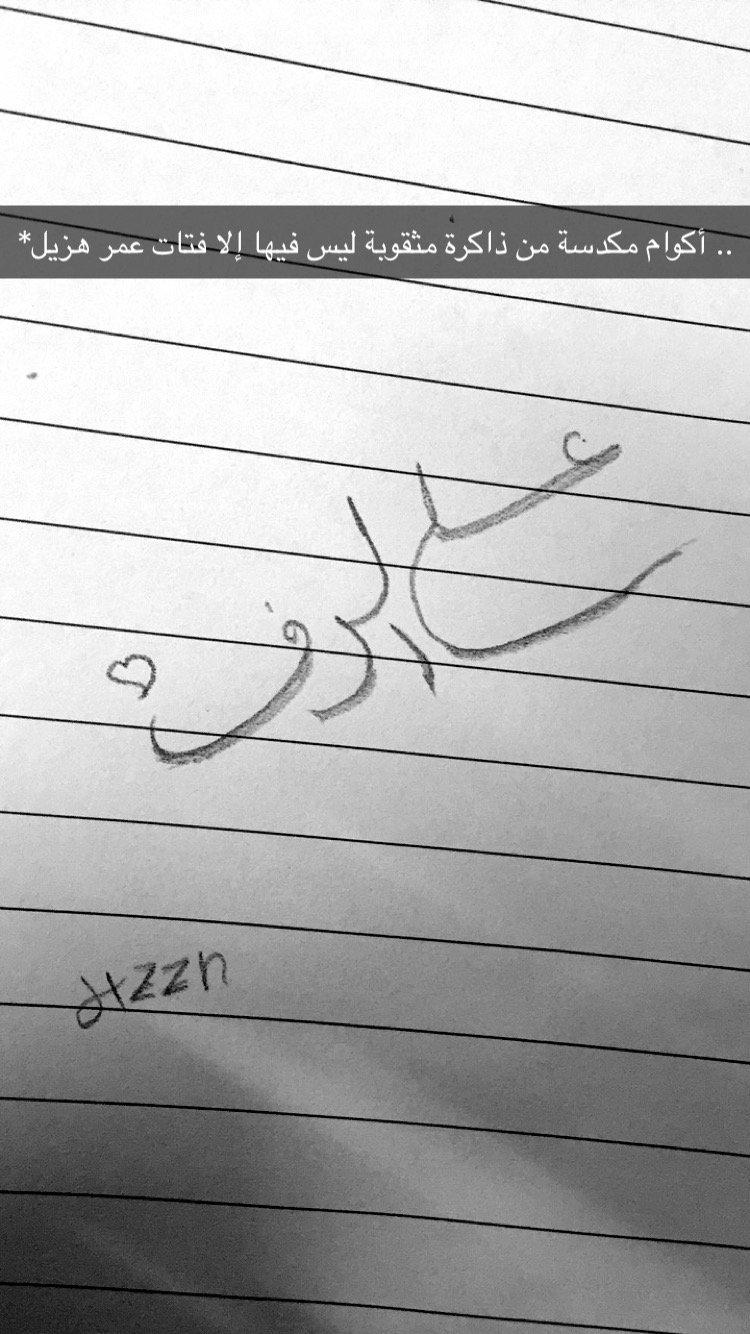 .. أكوام مكدسة من ذاكرة مثقوبة ليس فيها إلا فتات عمر هزيل*
على الرف
Hzzn